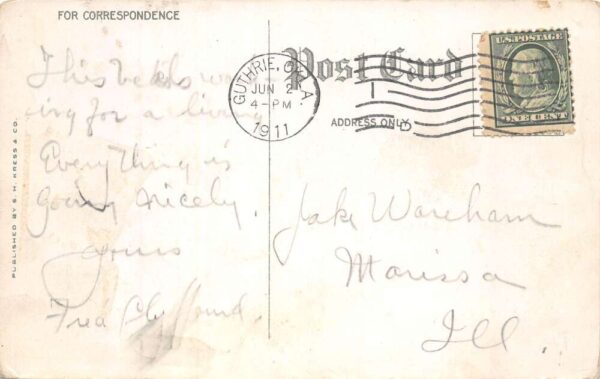 FOR CORRESPONDENCE
Post Card
ADDRESS ONLY
U.S. POSTAGE
ONE CENT
GUTHRIE, OKLA.
JUN 2
4-PM
1911
PUBLISHED BY S. H. KRESS & CO.
This
ing for a living
Everything is
going nicely.
Yours
Fred
Jake Wareham
Marissa
Ill.